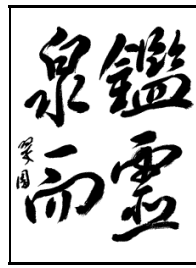 鑑靈
泉而